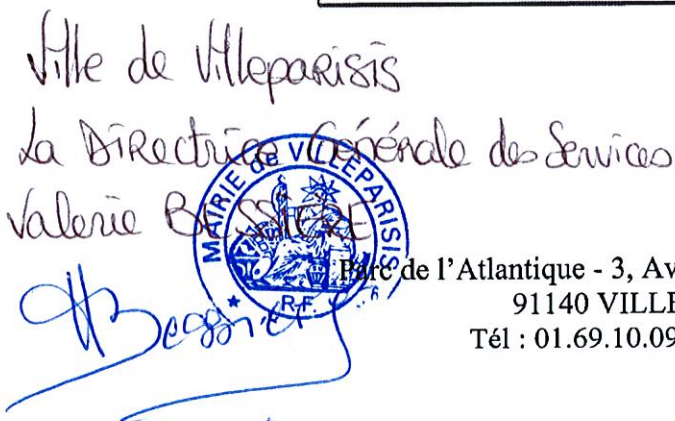 Ville de Villeparisis
La Directrice Générale des Services
Valerie BESSIERE
MAIRIE de VILLEPARISIS
R.F.
Bessiere
Parc de l'Atlantique - 3, Av
91140 VILLE
Tél : 01.69.10.09